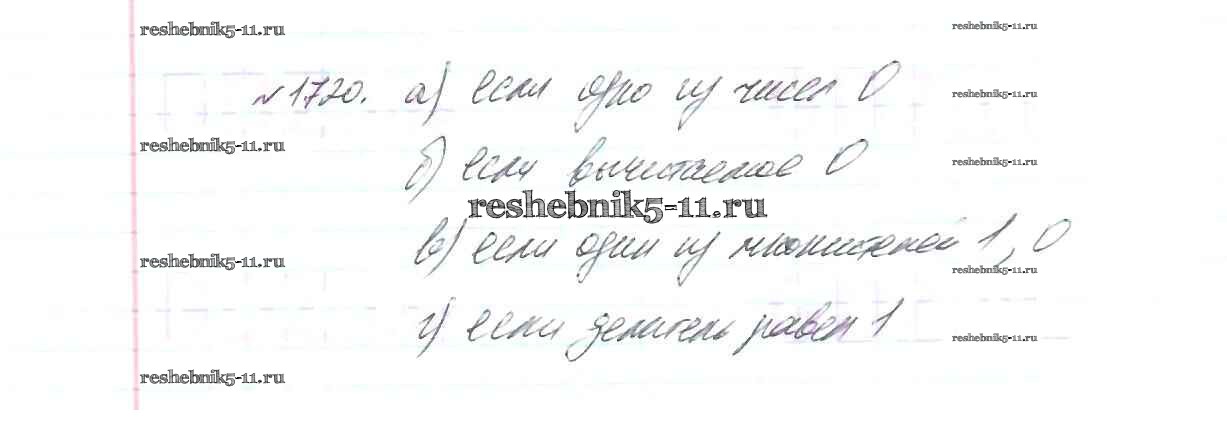 reshebnik5-11.ru
reshebnik5-11.ru
№1720. а) если одно из чисел 0
reshebnik5-11.ru
reshebnik5-11.ru
б) если вычитаемое 0
reshebnik5-11.ru
reshebnik5-11.ru
в) если один из множителей 1, 0
reshebnik5-11.ru
reshebnik5-11.ru
г) если делитель равен 1
reshebnik5-11.ru
reshebnik5-11.ru